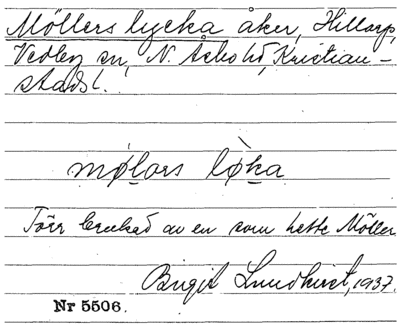 Möllers lycka åker, Hillarp,
Vedby sn, N. Åsbo hd, Kristian-
stads l.
mølars løka
Förr brukad av en som hette Möller
Birgit Lundkvist, 1937.
Nr 5506.